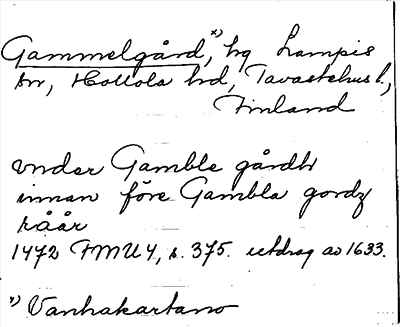 Gammelgård,*) hg Lampis
sn, Hollola hd, Tavastehus l.,
Finland
vnder Gamble gårdh
innan före Gambla gordz
råår
1472 FMU 4, s. 375. utdrag av 1633.
*) Vanhakartano